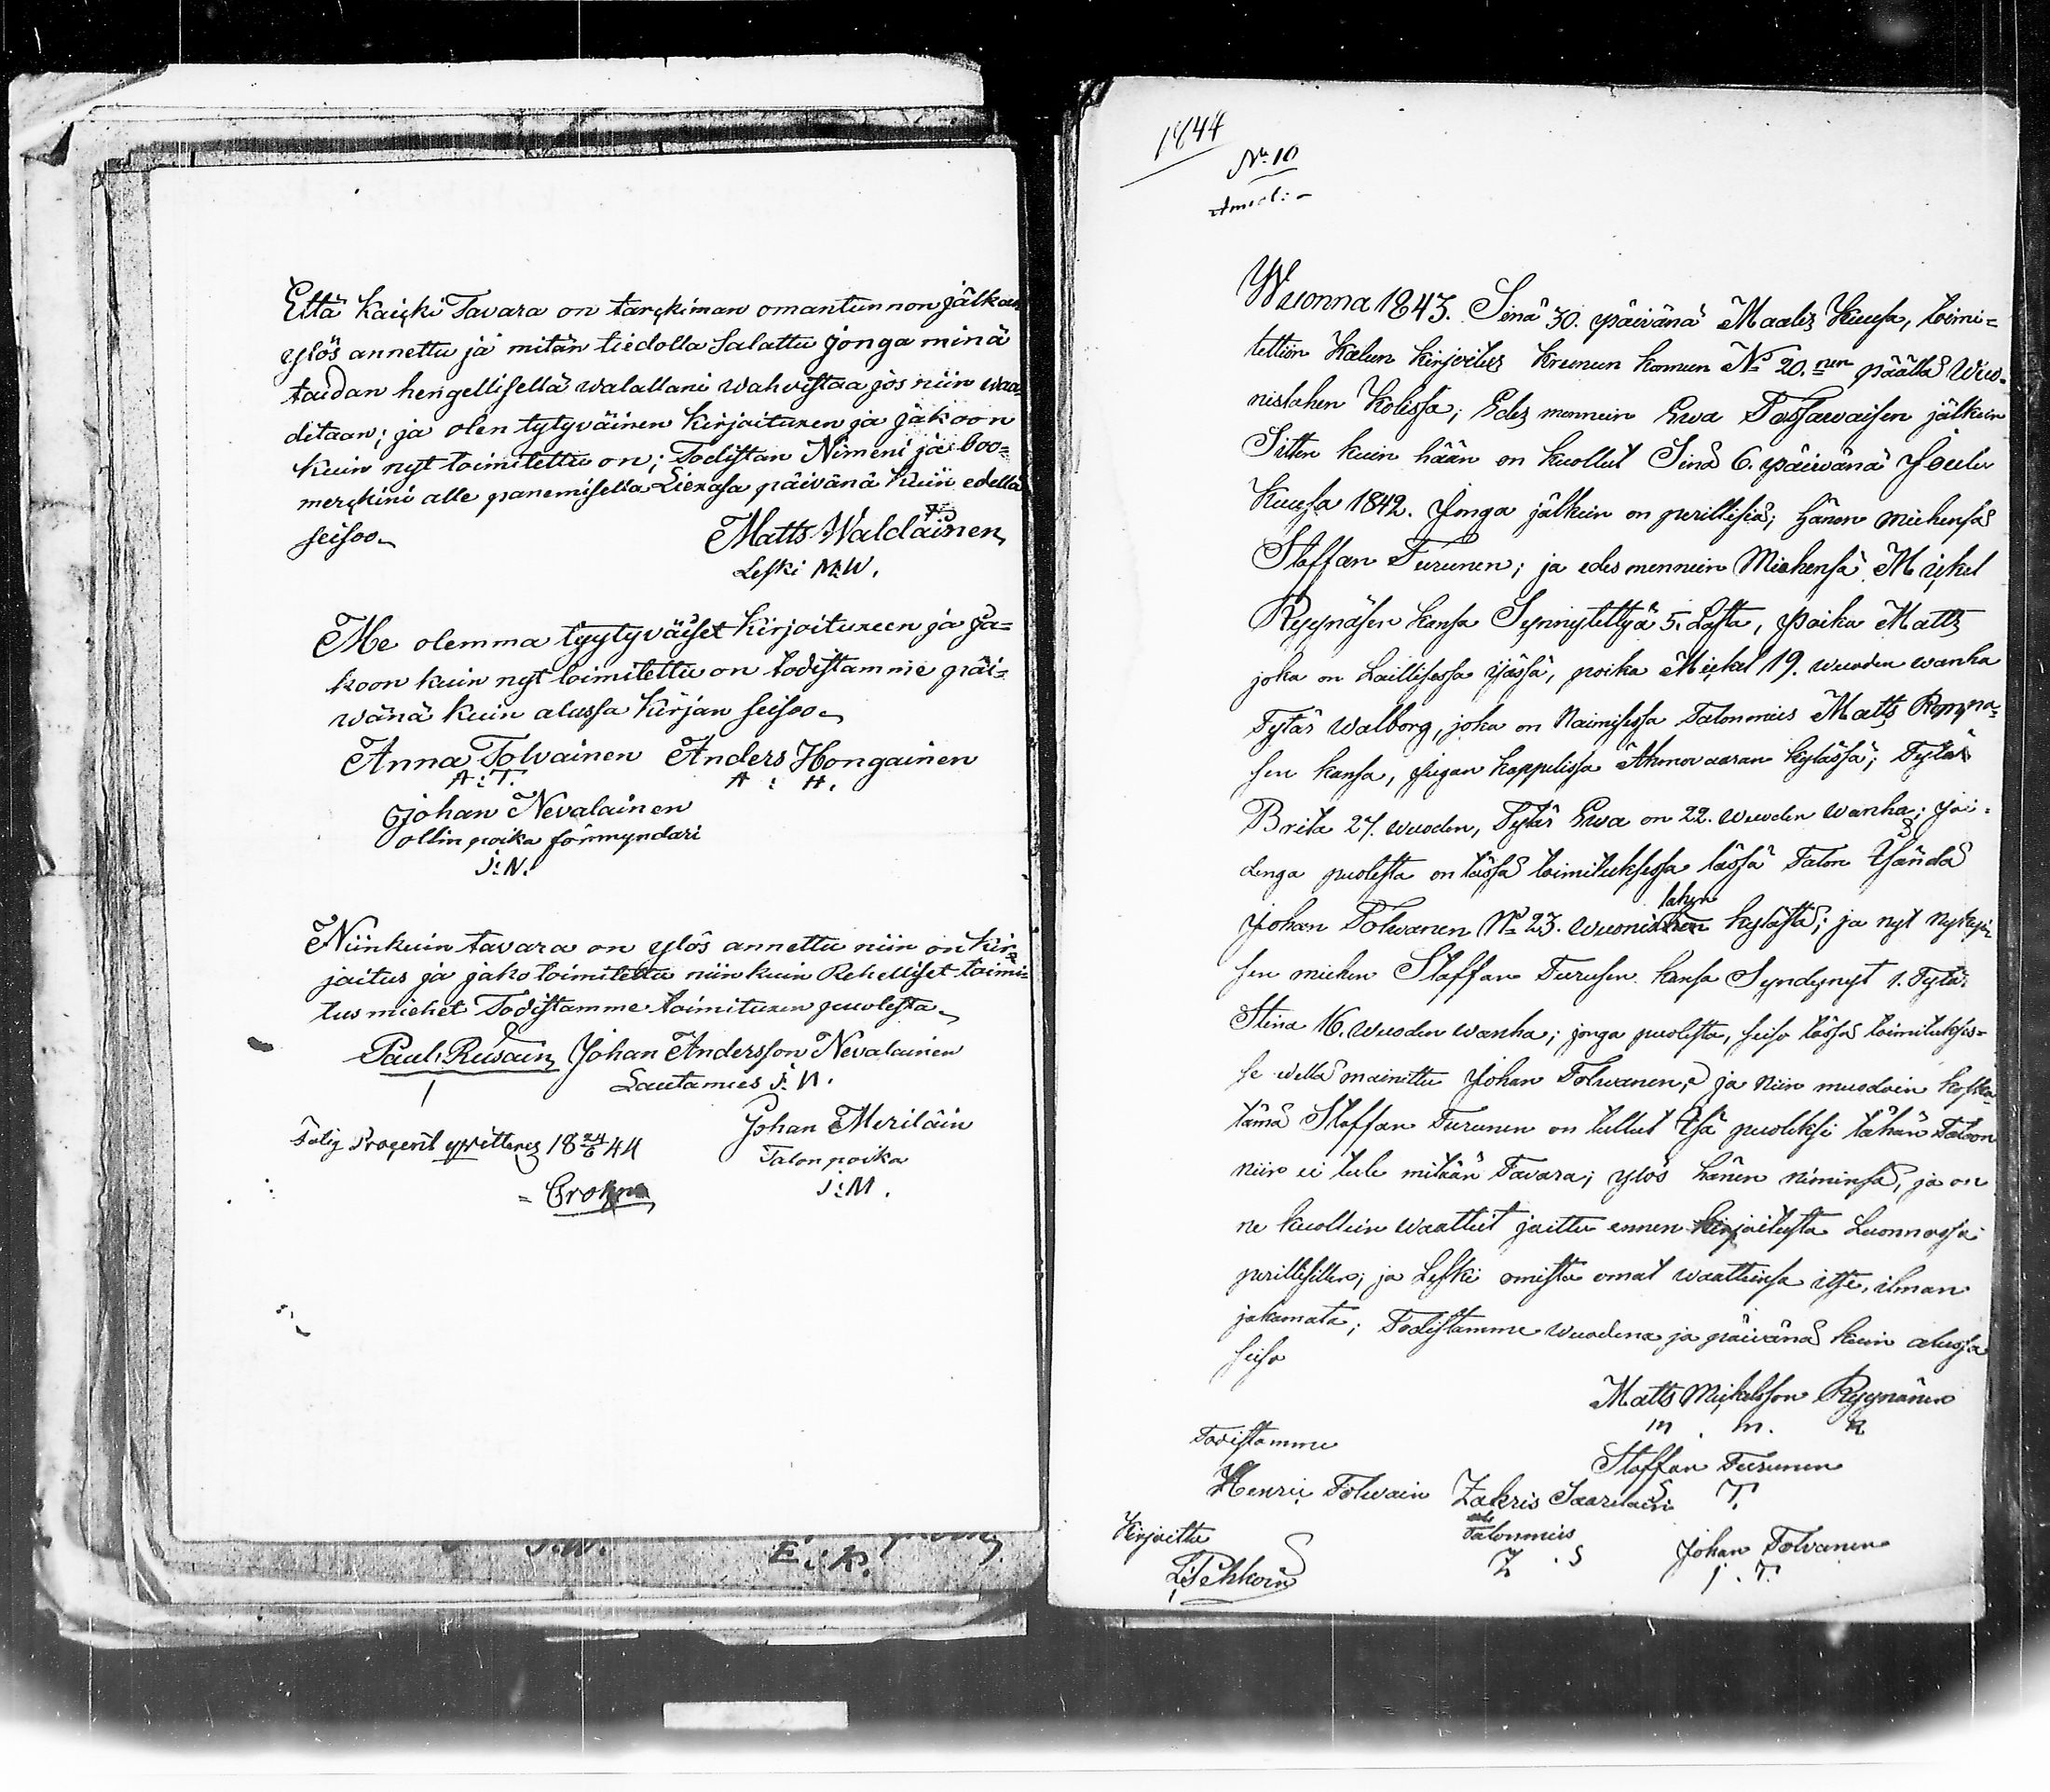 Että kaicki Tavara on tarckiman omantunnon jälkän
ylös annettu ja mitän tiedolla Salattu jonga minä
taidan hengellisellä walallani wahvistaa jos niin waa-
ditaan; ja olen tytyväinen kirjoituxen ja jakoon
kuin nyt toimitettu on; Todistan Nimeni ja boo=
merckini alle panemisella Liexasa päivänä kuin edellä
seisoo
Matts Waldäinen
Leski M:W.
Me olemma tyytyväiset kirjoituxeen ja ja=
koon kuin nyt toimitettu on todistamme päi=
wänä kuin alussa kirjan seisoo
Anna Tolvainen Anders Hongainen
A:T. A : H.
Johan Nevalainen
ollin poika förmyndari
J:N.
Niinkuin tavara on ylös annettu niin on kir=
joitus ja jako toimitettu niin kuin Rehelliset toimi=
tus miehet Todistamme toimituxen puolesta
Paul: Rusain Johan Andersson Nevalainen
Lautamies J:N.
Johan Meriläin
Fatig Procent qvitteras 18 24/6 44
Talon poika
J:M.
1844
No 10
Wuonna 1843. Sinä 30. päivänä Maalis Kuusa, toimi=
tettiin kalun kirjoitus krunun komun No 20.nen päällä Wuo-
nislahen Kolissa; Edes mennein Ewa Tossawaisen jälkein
Sitten kuin hään on kuollut Sinä 6. päivänä Joulu
Kuusa 1842. Jonga jälkein on perillisiä; hänen miehensä
Staffan Turunen; ja edes mennein Miehensä Mickel
Ryynäsen kansa Synnytettyä 5. Lasta, poika Matts
joka on Laillisessa Jässä, poika Mickel 19. wuoden wanha
Tytär Walborg, joka on Naimisessa Talonmies Matts Ryynä-
sen kansa, Jugan kappelissa Ahmovaaran kylässä; Tytär
Brita 27. wuoden, Tytär Ewa on 22. wuoden wanha; joi-
denga puolesta on tässä toimituksessa tässä Talon Isändä
lahen
Johan Tolwanen No 23. Wuonis kylästä; ja nyt nykyi-
sen miehen Staffan Turusen kansa Syndynyt 1. Tytär
Stina 16. wuoden wanha; jonga puolesta, seiso tässä toimitukses-
sa wellä mainittu Johan Tolwanen, ja niin muodoin koska
tämä Staffan Turunen on tullut Isä puoleksi tähän Taloon
niin ei tule mitään Tavara; ylös hänen nimensä, ja on
ne kuollein waatteet jaittu ennen kirjoitusta Luonnossa
perillisillen; ja Leski omista omat waatteinsa itse, ilman
jakamata; Todistamme wuodena ja päivänä kuin alussa
seiso
Matts Mickelsson Ryynänen
M. M. R
Todistamme
Staffan Turunen
T.
Henric Tolwain Zakris Saarelain
Kirjoitti
Talonmies
Z. S
Johan Tolvanen
J. T.